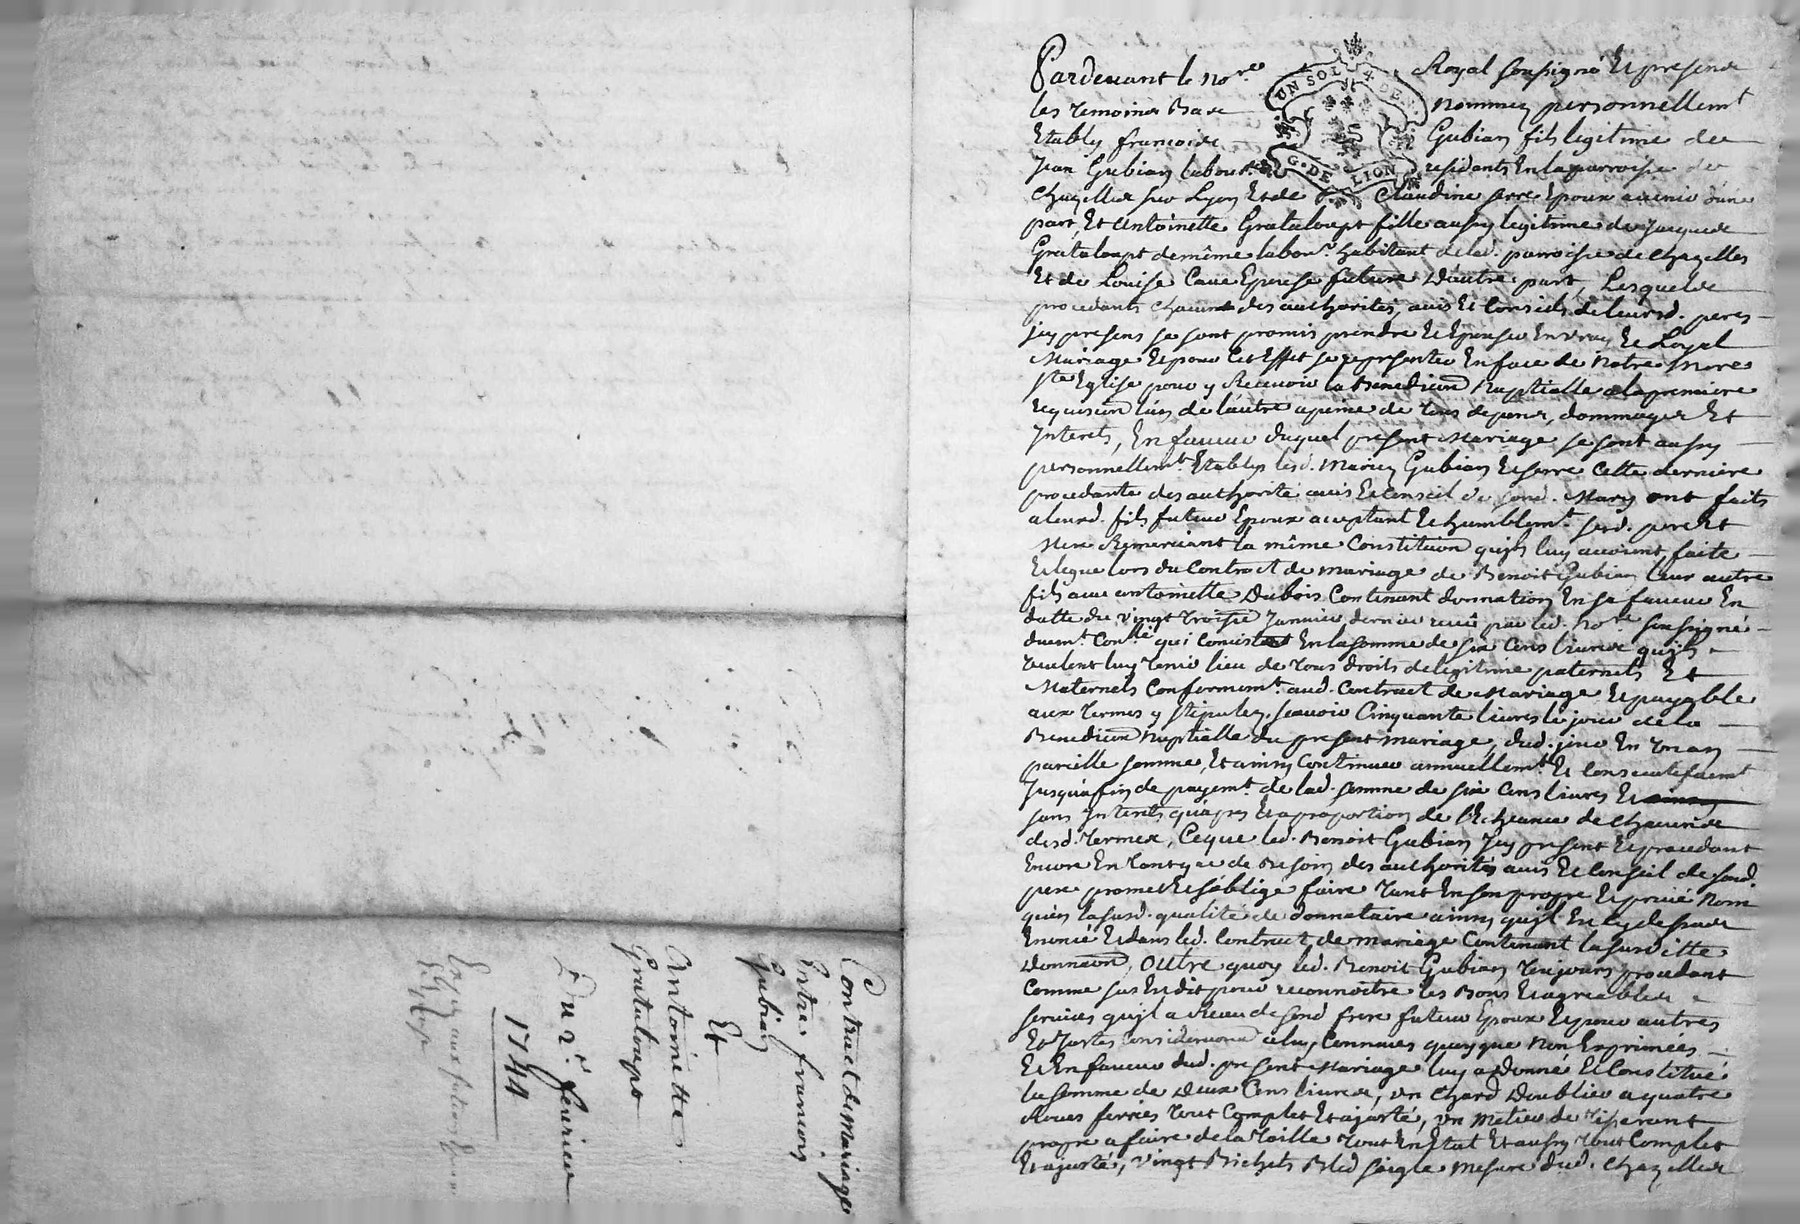 Contract de Mariage
Entre francois
Gubian
Et
Antoinette
Grataloupt
Du 2e. feuvrier
1744
Pardeuant le Nore. Royal soussigné Et presence
UN SOL 4 DEN.
les temoins Bas nommez personnellemt
Etably francois Gubian fils legitime de
Jean Gubian labour. residants En la parroisse de
G. DE LION
Chazelles sur Lyon Et de Claudine serre Epoux auenir d'une
part, Et Antoinette Grataloupt fille aussy legitime de Jacques
Grataloupt de même labour. habitant de lad. parroisse de Chazelles
Et de Louise Caue Epouse future D'autre part, Lesquels
procedants chacun des authorités, auis Et Conseils de leursd. peres
jcy presens se sont promis prendre Et Epouser En vray Et Loyal
Mariage Et pour Cet Effet se representer En face de Notre Mere
ste Eglise pour y Receuoir la Benediction Nuptialle a la premiere
requisition l'un de l'autre a peine de tous depens, dommages Et
Interets, En faueur duquel present Mariage se sont aussy
personnellemt. Etablys lesd. Mariez Gubian Et serre Cette derniere
procedante des authorité auis Et Conseil de sond. Mary ont faits
a leurd. fils futur Epoux acceptant Et humblemt. sesd. pere Et
Mere Remerciant la même Constitution qu'ils luy auoient faite
Et legue lors du Contract de mariage de Benoit Gubian leur autre
fils auec antoinette Dubois Contenant donnation En sa faueur En
datte du vingt troisie Januier dernier receu par led. Nore. soussigné
duemt. Conllé qui Consiste En la somme de six Cens liures qu'ils
veulent luy tenir lieu de tous droits de legitime paternels Et
Maternels Conformemt. aud. Contract de Mariage Et payable
aux termes y stipulez, scauoir Cinquante liures le jour de la
Benediction Nuptialle du present mariage, dud. jour En un an
pareille somme, Et ainsy Continuer annuellemt. Et Consecutiuemt
Jusqu'a fin de payemt. de lad. somme de six Cens liures Et
sans Interets qu'apres Et a proportion de l'Echeance de chacun
desd. termes, Ce que led. Benoit Gubian Jcy present Et procedant
Encore En tant que de Besoin des authorités auis Et Conseil de sond.
pere promet Et s'oblige faire tant En son propre Et priué Nom
qu'en la susd. qualité de donnataire ainsy qu'il En Cy dessus
Enoncé Et dans led. Contract de mariage Contenant la susditte
Donnation, Outre quoy led. Benoit Gubian toujours procedant
Comme sus En dit pour reconnoitre les Bons Et agreables
seruices qu'il a Receu de sond frere futur Epoux Et pour autres
Et Justes Considerations a luy Connues quoyque Non Exprimées
Et En faueur dud. present Mariage luy a Donné Et Constitué
la somme de Deux Cens liures, un Chard Doublier a quatre
Roues ferrées tout Complet Et ajusté, un Metier de tisserant
propre a faire de la Toille tout En Etat Et aussy tout Complet
Et ajusté, vingt Bichets Bled soigle mesure dud. Chazelles